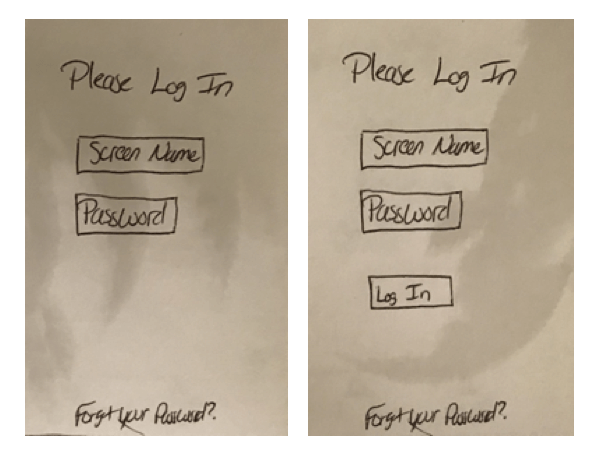 Please Log In
Screen Name
Password
Forgot your Password?
Please Log In
Screen Name
Password
Log In
Forgot your Password?